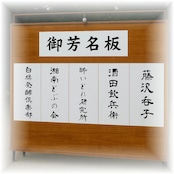 御芳名板
藤沢呑子
酒田飲兵衛
酔いどれ研究所
湘南どぶの会
自然発酵倶楽部